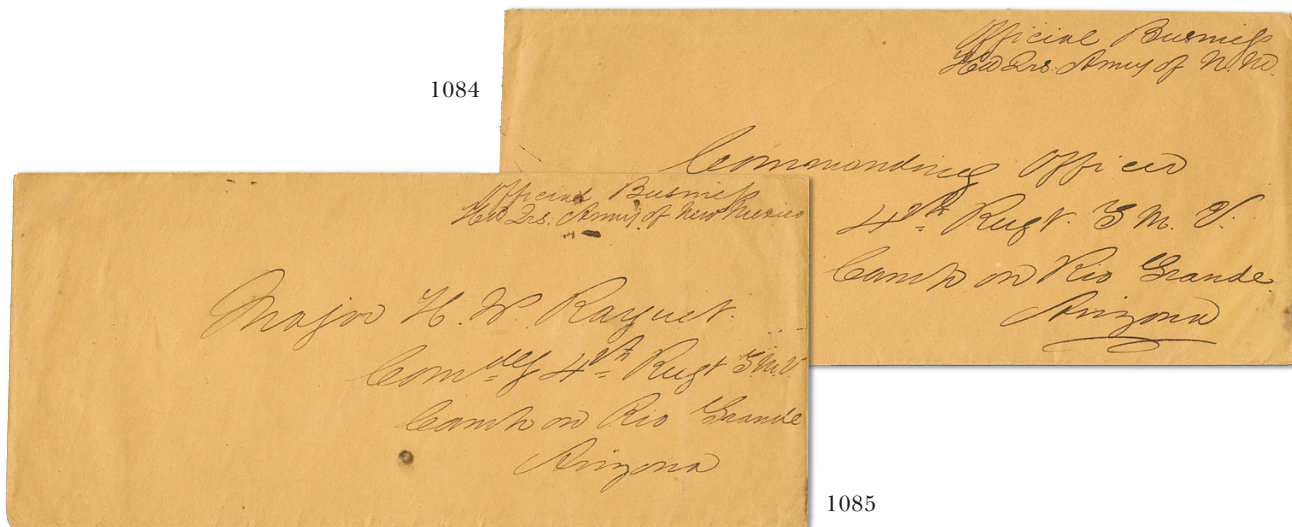 1084
Official Business
Hd Qrs. Army of N. M.
Commanding Officer
4th Regt. T. M. V.
Camp on Rio Grande
Arizona
Official Business
Hd Qrs. Army of New Mexico
Major H. W. Raguet.
Comdg 4th Regt T. M. V.
Camp on Rio Grande
Arizona
1085